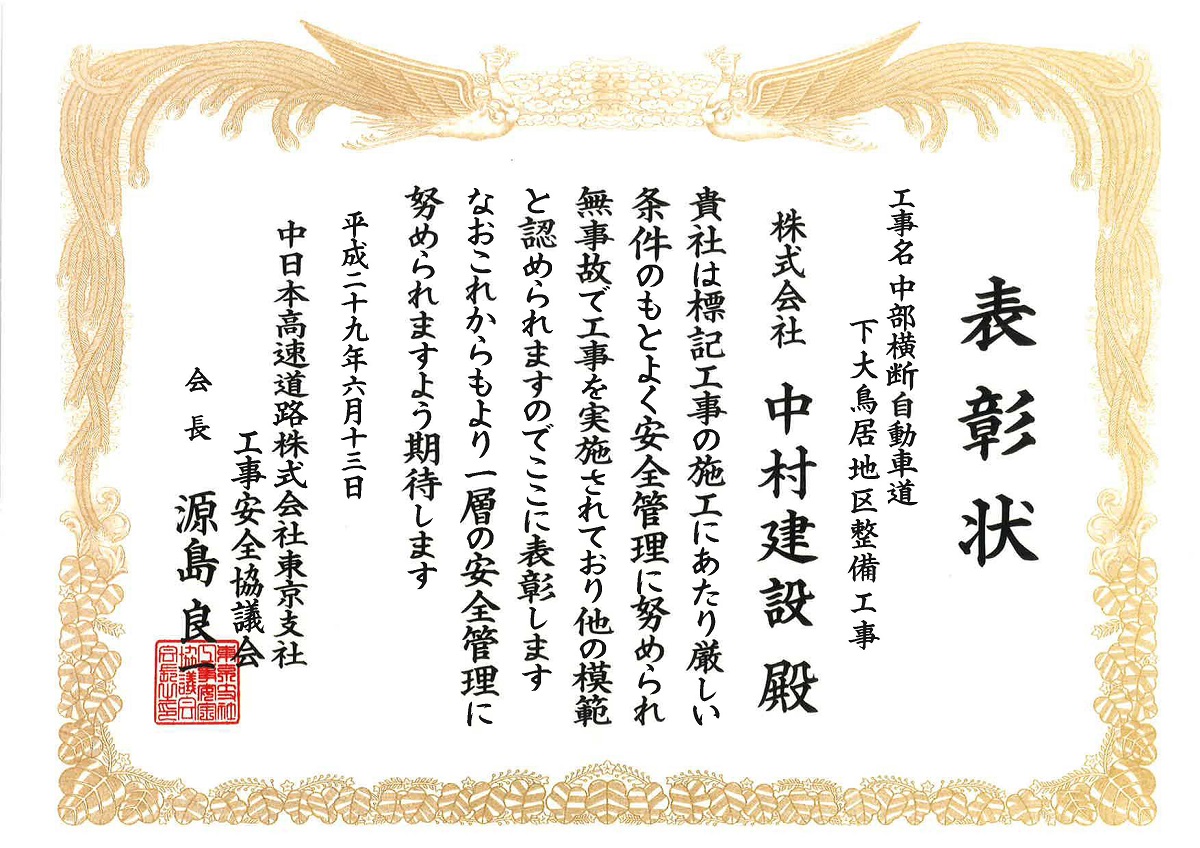 表彰状
工事名 中部横断自動車道
下大鳥居地区整備工事
株式会社 中村建設 殿
貴社は標記工事の施工にあたり厳しい
条件のもとよく安全管理に努められ
無事故で工事を実施されており他の模範
と認められますのでここに表彰します
なおこれからもより一層の安全管理に
努められますよう期待します
平成二十九年六月十三日
中日本高速道路株式会社東京支社
工事安全協議会
会長 源島良一
東京支社
工事安全
協議会
会長之印